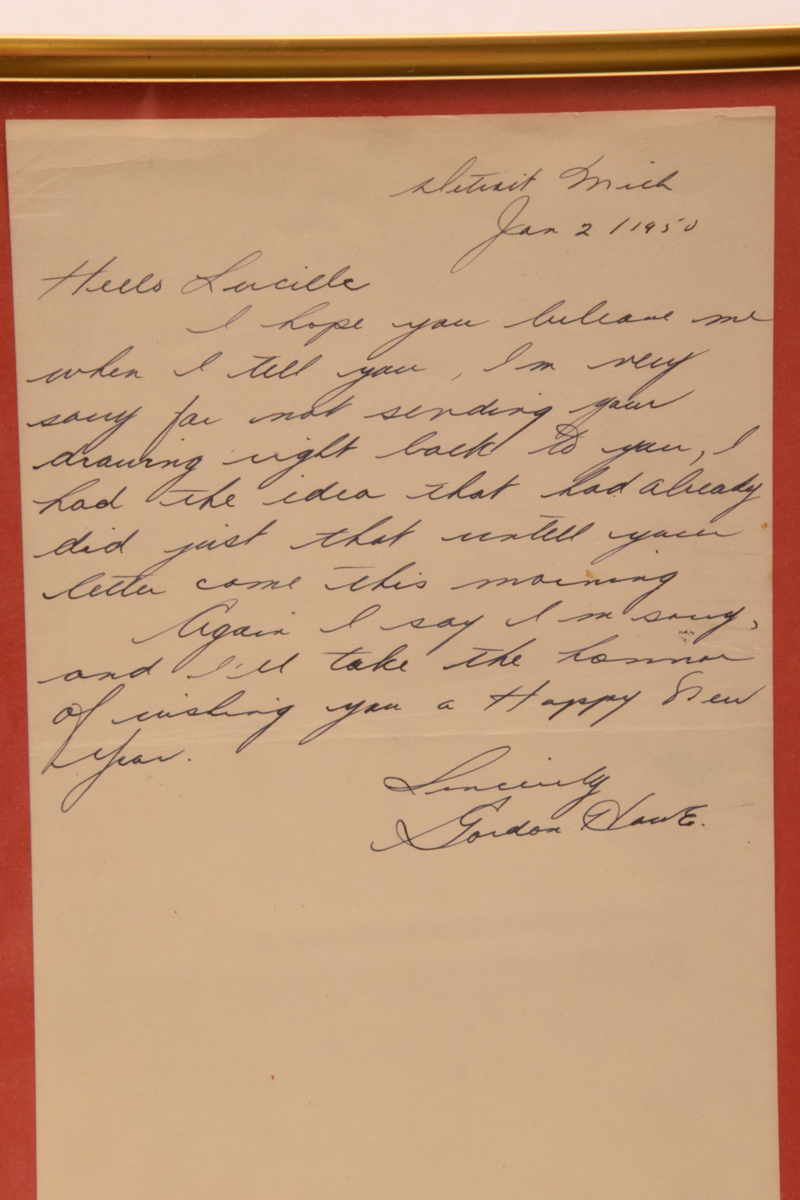 Detroit Mich
Jan 2/1950
Hello Lucille
I hope you beleave me
when I tell you, I'm very
sorry for not sending your
drawing right back to you, I
had the idea that had already
did just that untell your
letter come this morning
Again I say I'm sorry,
and I'll take the honnor
of wishing you a Happy New
Year.
Sincerely
Gordon Howe.